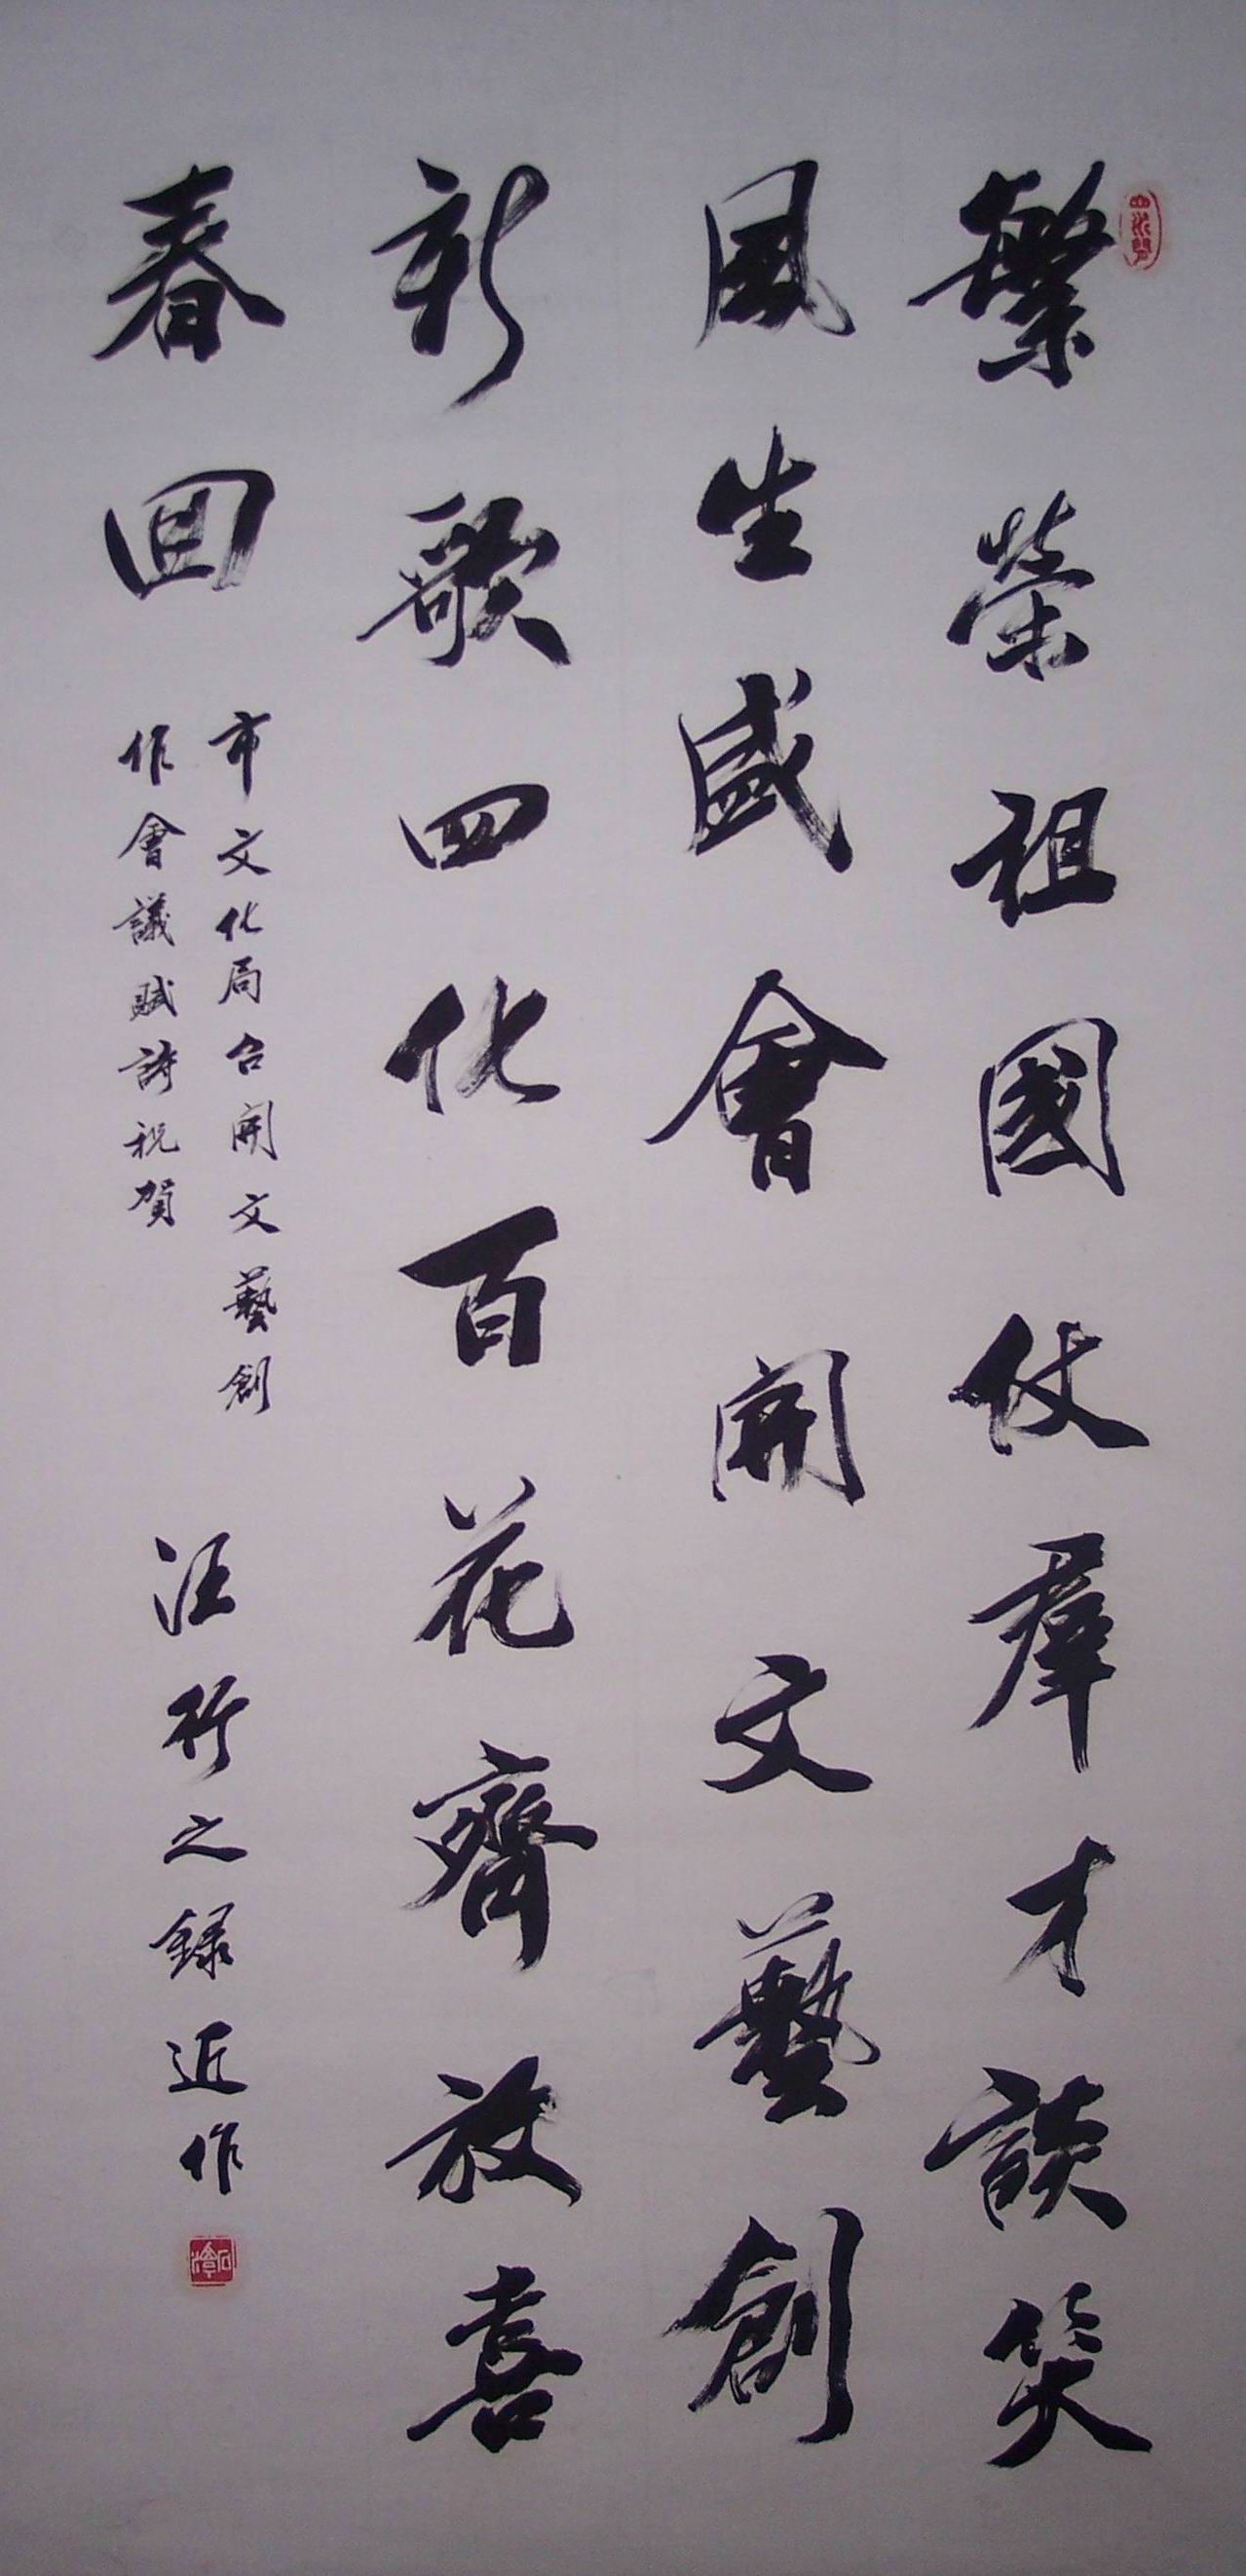 繁榮祖國仗群才談笑
風生盛會開文藝創
新歌四化百花齊放喜
春回
市文化局召開文藝創
作會議賦詩祝賀
汪行之録近作